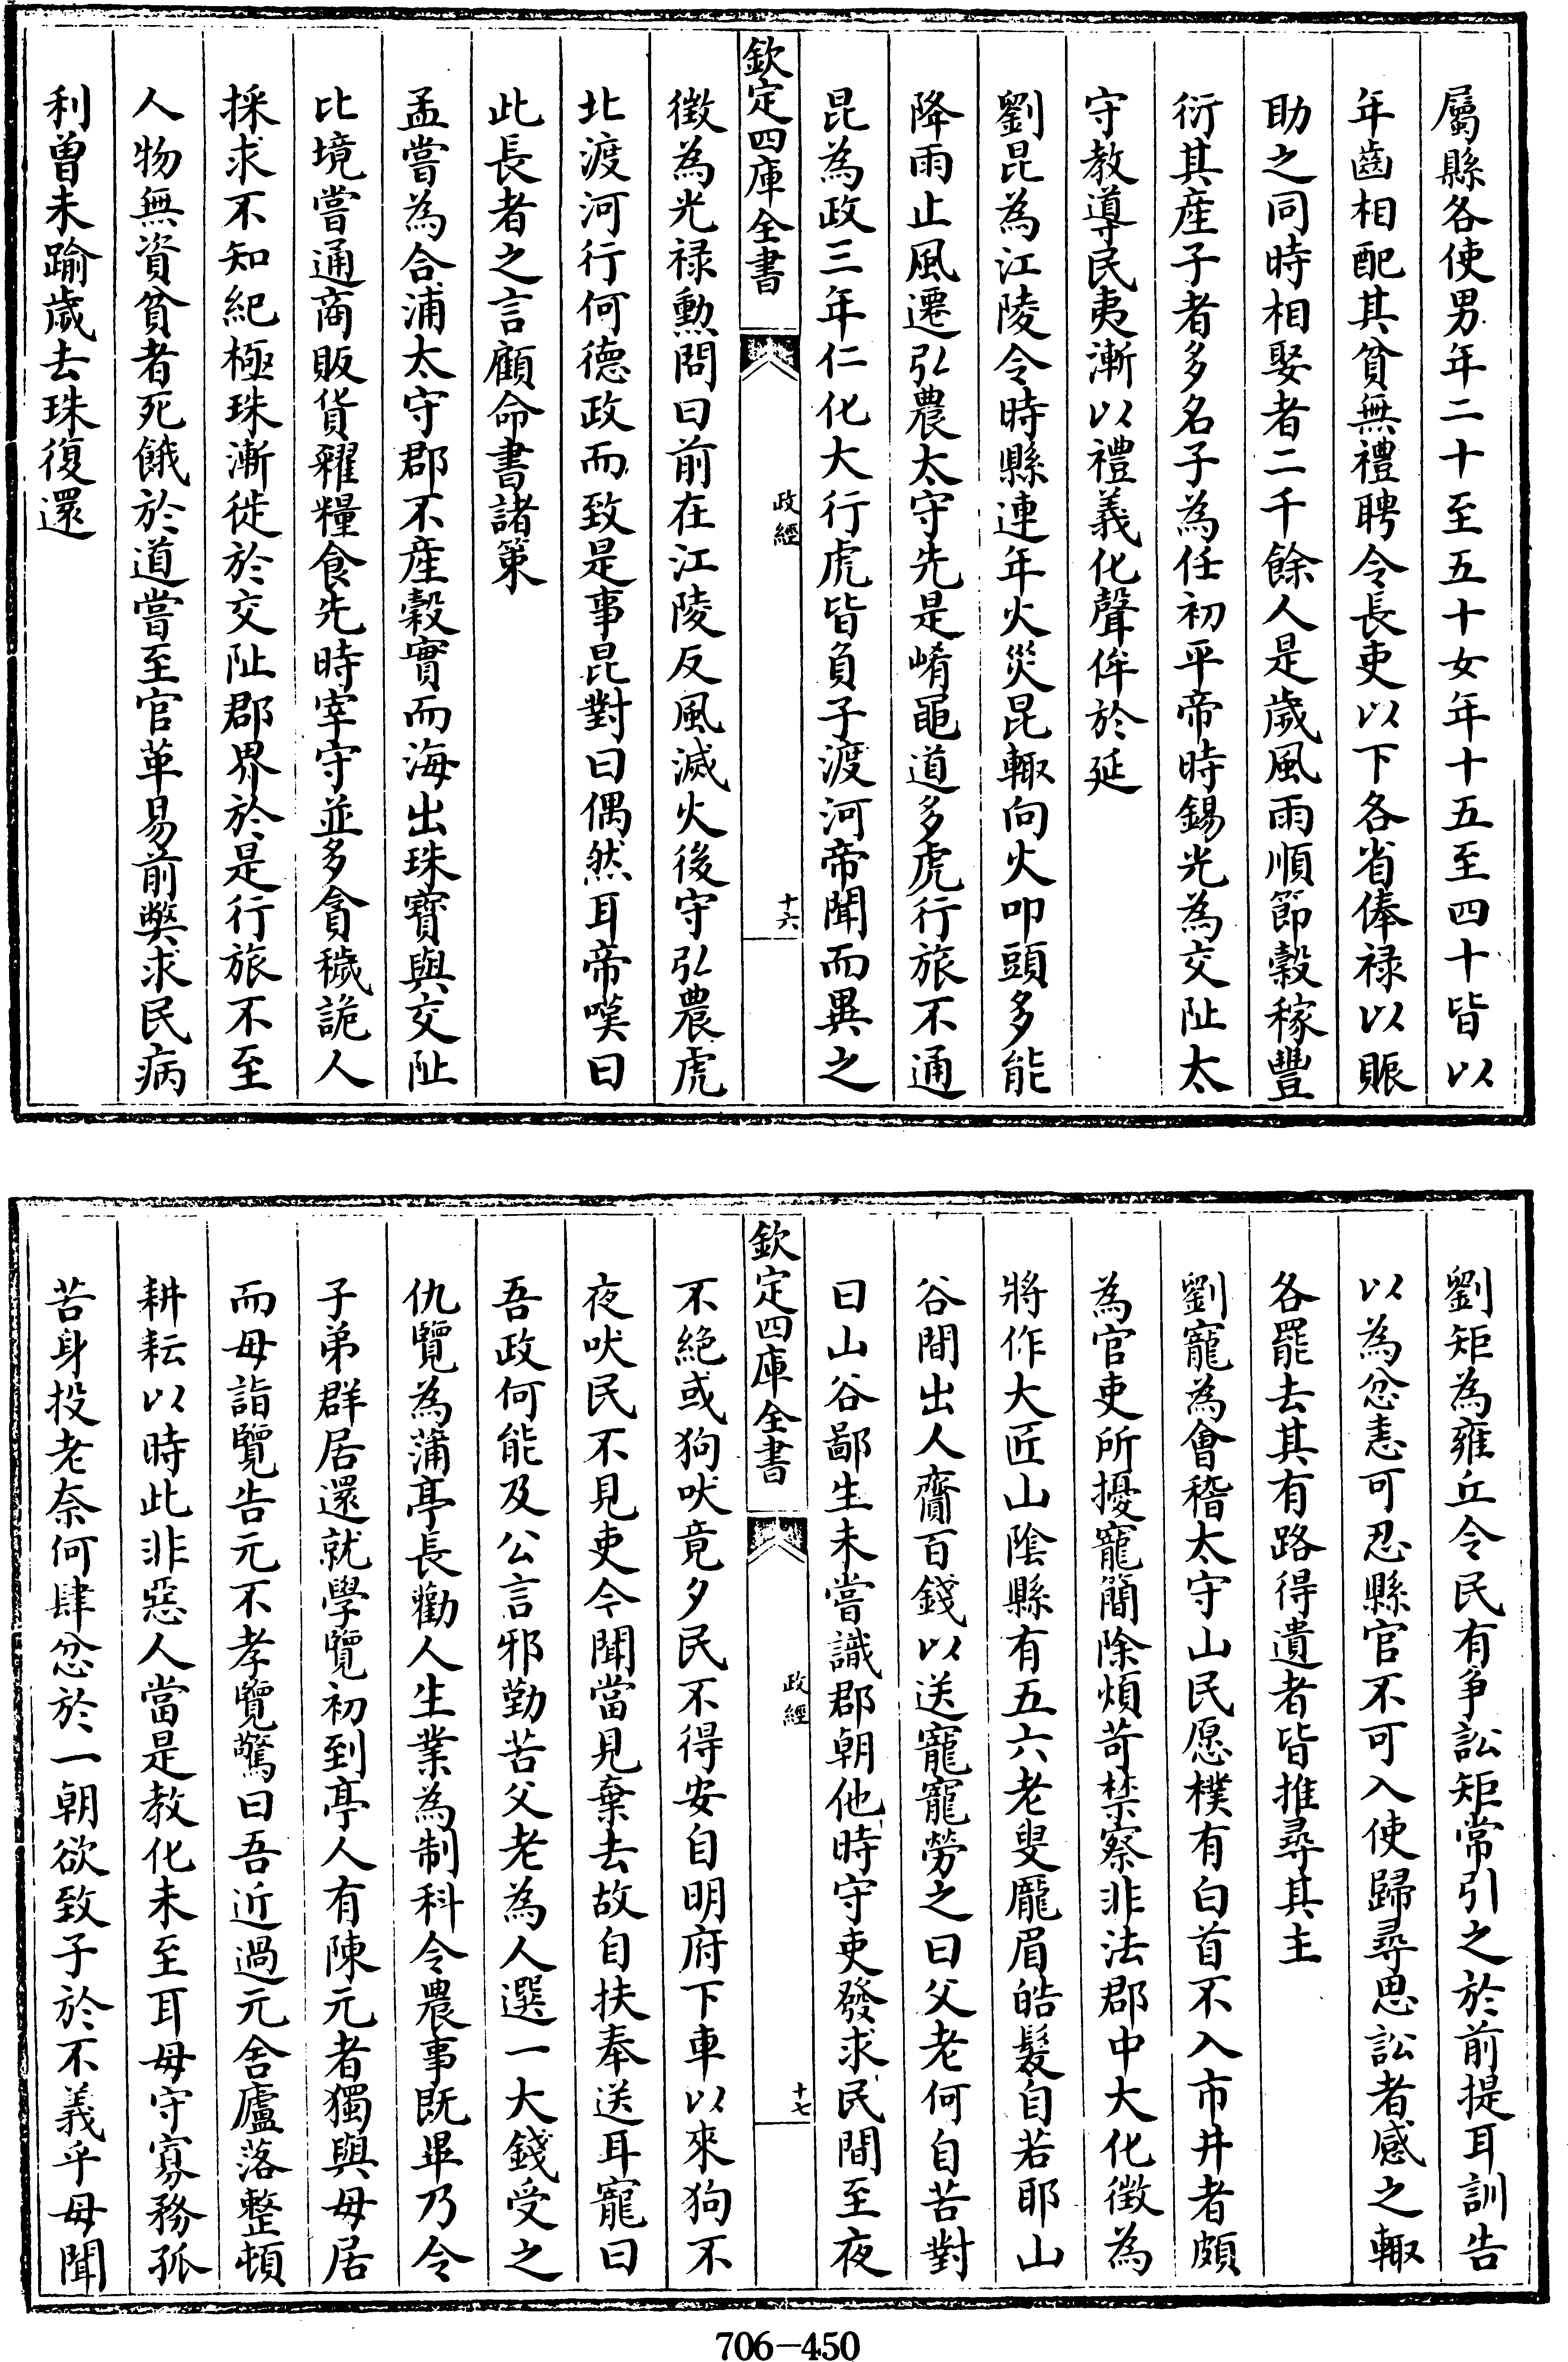 屬縣各使男年二十至五十女年十五至四十皆以
年齒相配其貧無禮聘令長吏以下各省俸祿以賑
助之同時相娶者二千餘人是歲風雨順節穀稼豐
衍其産子者多名子為任初平帝時錫光為交阯太
守教導民夷漸以禮義化聲侔於延
劉昆為江陵令時縣連年火災昆輙向火叩頭多能
降雨止風遷弘農太守先是崤黽道多虎行旅不通
昆為政三年仁化大行虎皆負子渡河帝聞而異之
欽定四庫全書
政經
十六
徴為光禄勲問曰前在江陵反風滅火後守弘農虎
北渡河行何德政而致是事昆對曰偶然耳帝嘆曰
此長者之言顧命書諸策
孟嘗為合浦太守郡不産穀實而海出珠寳與交阯
比境嘗通商販貨糴糧食先時宰守並多貪穢詭人
採求不知紀極珠漸徙於交阯郡界於是行旅不至
人物無資貧者死餓於道嘗至官革易前弊求民病
利曽未踰歲去珠復還
劉矩為雍丘令民有爭訟矩常引之於前提耳訓告
以為忿恚可忍縣官不可入使歸尋思訟者感之輙
各罷去其有路得遺者皆推尋其主
劉寵為會稽太守山民愿樸有白首不入市井者頗
為官吏所擾寵簡除煩苛禁察非法郡中大化徴為
將作大匠山陰縣有五六老叟厖眉皓髮自若耶山
谷間出人齎百錢以送寵寵勞之曰父老何自苦對
曰山谷鄙生未嘗識郡朝他時守吏發求民間至夜
欽定四庫全書
政經
十七
不絶或狗吠竟夕民不得安自明府下車以來狗不
夜吠民不見吏今聞當見棄去故自扶奉送耳寵曰
吾政何能及公言邪勤苦父老為人選一大錢受之
仇覽為蒲亭長勸人生業為制科令農事既畢乃令
子弟群居還就學覽初到亭人有陳元者獨與母居
而母詣覽告元不孝覽驚曰吾近過元舍廬落整頓
耕耘以時此非惡人當是教化未至耳母守寡務孤
苦身投老奈何肆忿於一朝欲致子於不義乎母聞
706-450